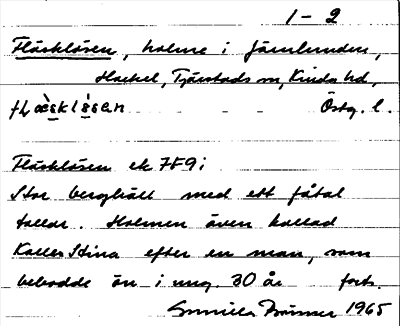 1-2
Fläsklösen, holme i Järnlunden,
Hackel, Tjärstads sn, Kinda hd,
Östg. l.
Fläsklösen ek 7F9:
Stor berghäll med ett fåtal
tallar. Holmen även kallad
Kalles Stina efter en man, som
bebodde ön i ung. 30 år forts.
Gunilla 1965